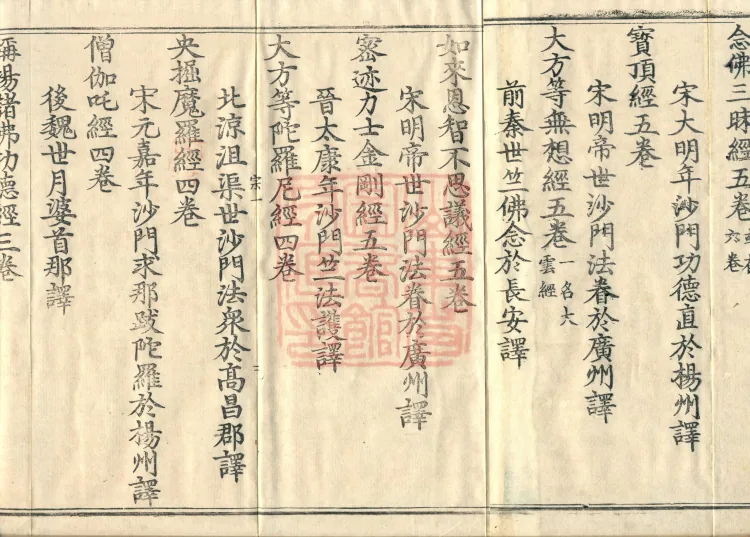 念佛三昧經五卷六卷
宋大明年沙門功德直於揚州譯
寳頂經五卷
宋明帝世沙門法眷於廣州譯
大方等無想經五卷一名大雲經
前秦世竺佛念於長安譯
如來恩智不思議經五卷
宋明帝世沙門法眷於廣州譯
密迹力士金剛經五卷
晉太康年沙門竺法護譯
大方等陀羅尼經四卷
宋一
北涼沮渠世沙門法衆於高昌郡譯
央掘魔羅經四卷
宋元嘉年沙門求那跋陀羅於楊州譯
僧伽吒經四卷
後魏世月婆首那譯
稱揚諸佛功德經三卷